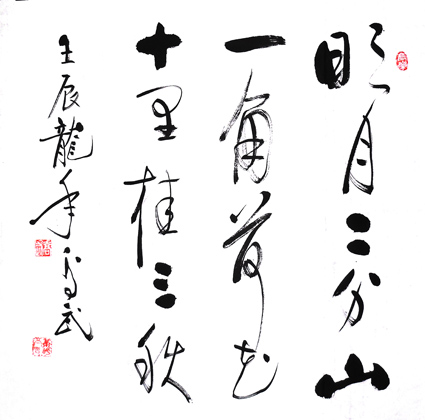 明月二分山
一角荷花
十里桂三秋
壬辰龍年武